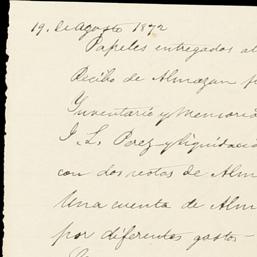 19. de Agosto 1872
Papeles entregados al
Recibo de Almazan p
Inventario y Memoria
J. L. Perez y liquidació
con dos restos de Alm
Una cuenta de Alm
por diferentes gastos -